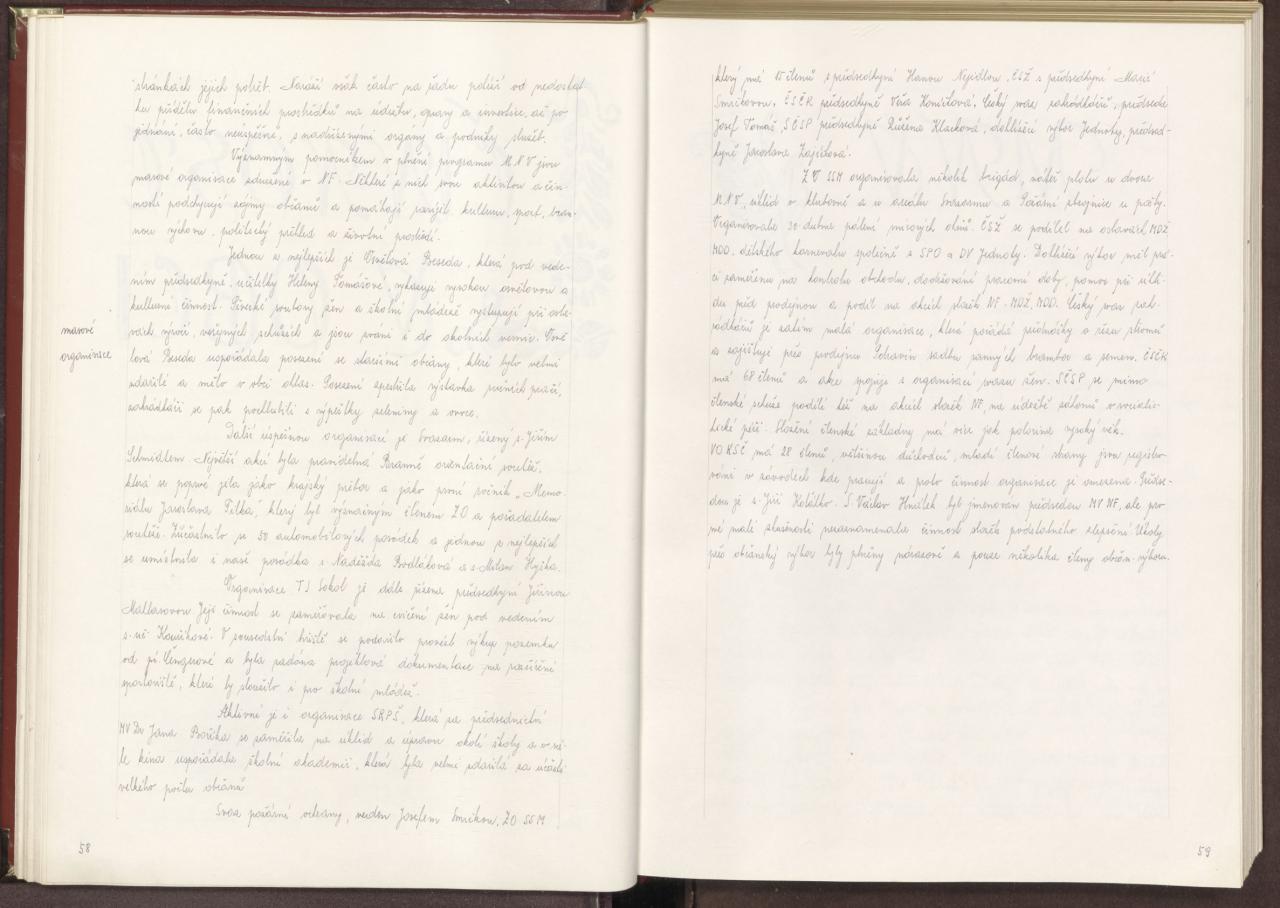 stránkách jejich potřeb. Naráží však často na řadu potíží od nedostat
ku přídělu finančních prostředků na údržbu, opravy a investice, až po
jednání, často neúspěšné, s nadřízenými orgány a podniky služeb.
Významným pomocníkem v plnění programu MNV jsou
masové organisace sdružené v NF. Některé z nich svou aktivitou a čin-
ností podchycují zájmy občanů a pomáhají rozvíjet kulturu, sport, bran-
nou výchovu, politický přehled a životní prostředí.
Jednou z nejlepších je Osvětová Beseda, která pod vede-
ním předsedkyně, učitelky Heleny Tomášové, vykazuje vysokou osvětovou a
kulturní činnost. Pěvecké soubory žen a školní mládeže vystupují při osla-
vách, výročí, veřejných schůzích a jsou zváni i do okolních vesnic. Osvě
masové
tová Beseda uspořádala posezení se staršími občany, které bylo velmi
organisace
zdařilé a mělo v obci ohlas. Posezení zpestřila výstavka ručních prací,
zahrádkáři se pak pochlubili s výpěstky zeleniny a ovoce.
Další úspěšnou organisací je Svazarm, řízený s. Jiřím
Schmidlem. Největší akcí byla pravidelná Branně orientační soutěž,
která se poprvé jela jako krajský přebor a jako první ročník „Memo-
riálu Jaroslava Filka", který byl význačným členem ZO a pořadatelem
soutěže. Zúčastnilo se 50 automobilových posádek a jednou z nejlepších
se umístnila i naše posádka s. Naděžda Brodláková a s. Milan Hyška.
Organisace TJ Sokol je dále řízena předsedkyní Jiřinou
Maltasovou. Její činnost se zaměřovala na cvičení žen pod vedením
s. uč. Kounkové. V sousedství hřiště se podařilo provést výkup pozemku
od pí. Čengerové a byla zadána projektová dokumentace na rozšíření
sportoviště, které by sloužilo i pro školní mládež.
Aktivní je i organisace SRPŠ, která za předsednictví
MVDr Jana Bořka se zaměřila na úklid a úpravu okolí školy a v sá-
le kina uspořádala školní akademii, která byla velmi zdařilá za účasti
velkého počtu občanů
Svaz požární ochrany, veden Josefem Smrčkou, ZO SSM
58
který má 15 členů s předsedkyní Hanou Nejedlou, ČSŽ s předsedkyní Marií
Smrčkovou, ČSČK předsedkyně Věra Koníčková, Český svaz zahrádkářů, předseda
Josef Tomáš, SČSP předsedkyně Růžena Klacková, dohlížecí výbor Jednoty, předsed-
kyně Jaroslava Zajíčková.
ZO SSM organisovala několik brigád, nátěr plotu u dvora
MNV, úklid v klubovně a v areálu Svazarmu a Požární zbrojnice u pošty.
Organisovala 30. dubna pálení mírových ohňů. ČSŽ se podílel na oslavách MDŽ
MDD, dětského karnevalu společně s SPO a DV Jednoty. Dohlížecí výbor měl prá-
ci zaměřenu na kontrolu obchodu, dodržování pracovní doby, pomoc při úkli-
du před prodejnou a podíl na akcích složek NF - MDŽ, MDD. Český svaz zah-
rádkářů je zatím malá organisace, která pořádá přednášky o řezu stromů
a zajišťuje přes prodejnu Potravin sadbu ranných brambor a semen. ČSČK
má 68 členů a akce spojuje s organisací svazu žen. SČSP se mimo
členské schůze podílí též na akcích složek NF, na údržbě záhonů v socialis-
tické péči. Složení členské základny má více jak polovina vysoký věk.
VO KSČ má 28 členů, většinou důchodců, mladí členové strany jsou registro-
váni v závodech kde pracují a proto činnost organisace je omezena. Předse-
dou je s. Jiří Kolátko. S. Václav Hnátek byl jmenován předsedou MV NF, ale pro
né malé zkušenosti nezaznamenala činnost složek podstatného zlepšení. Úkoly
pro občanský výbor byly plněny nárazově a pouze několika členy občan. výboru.
59